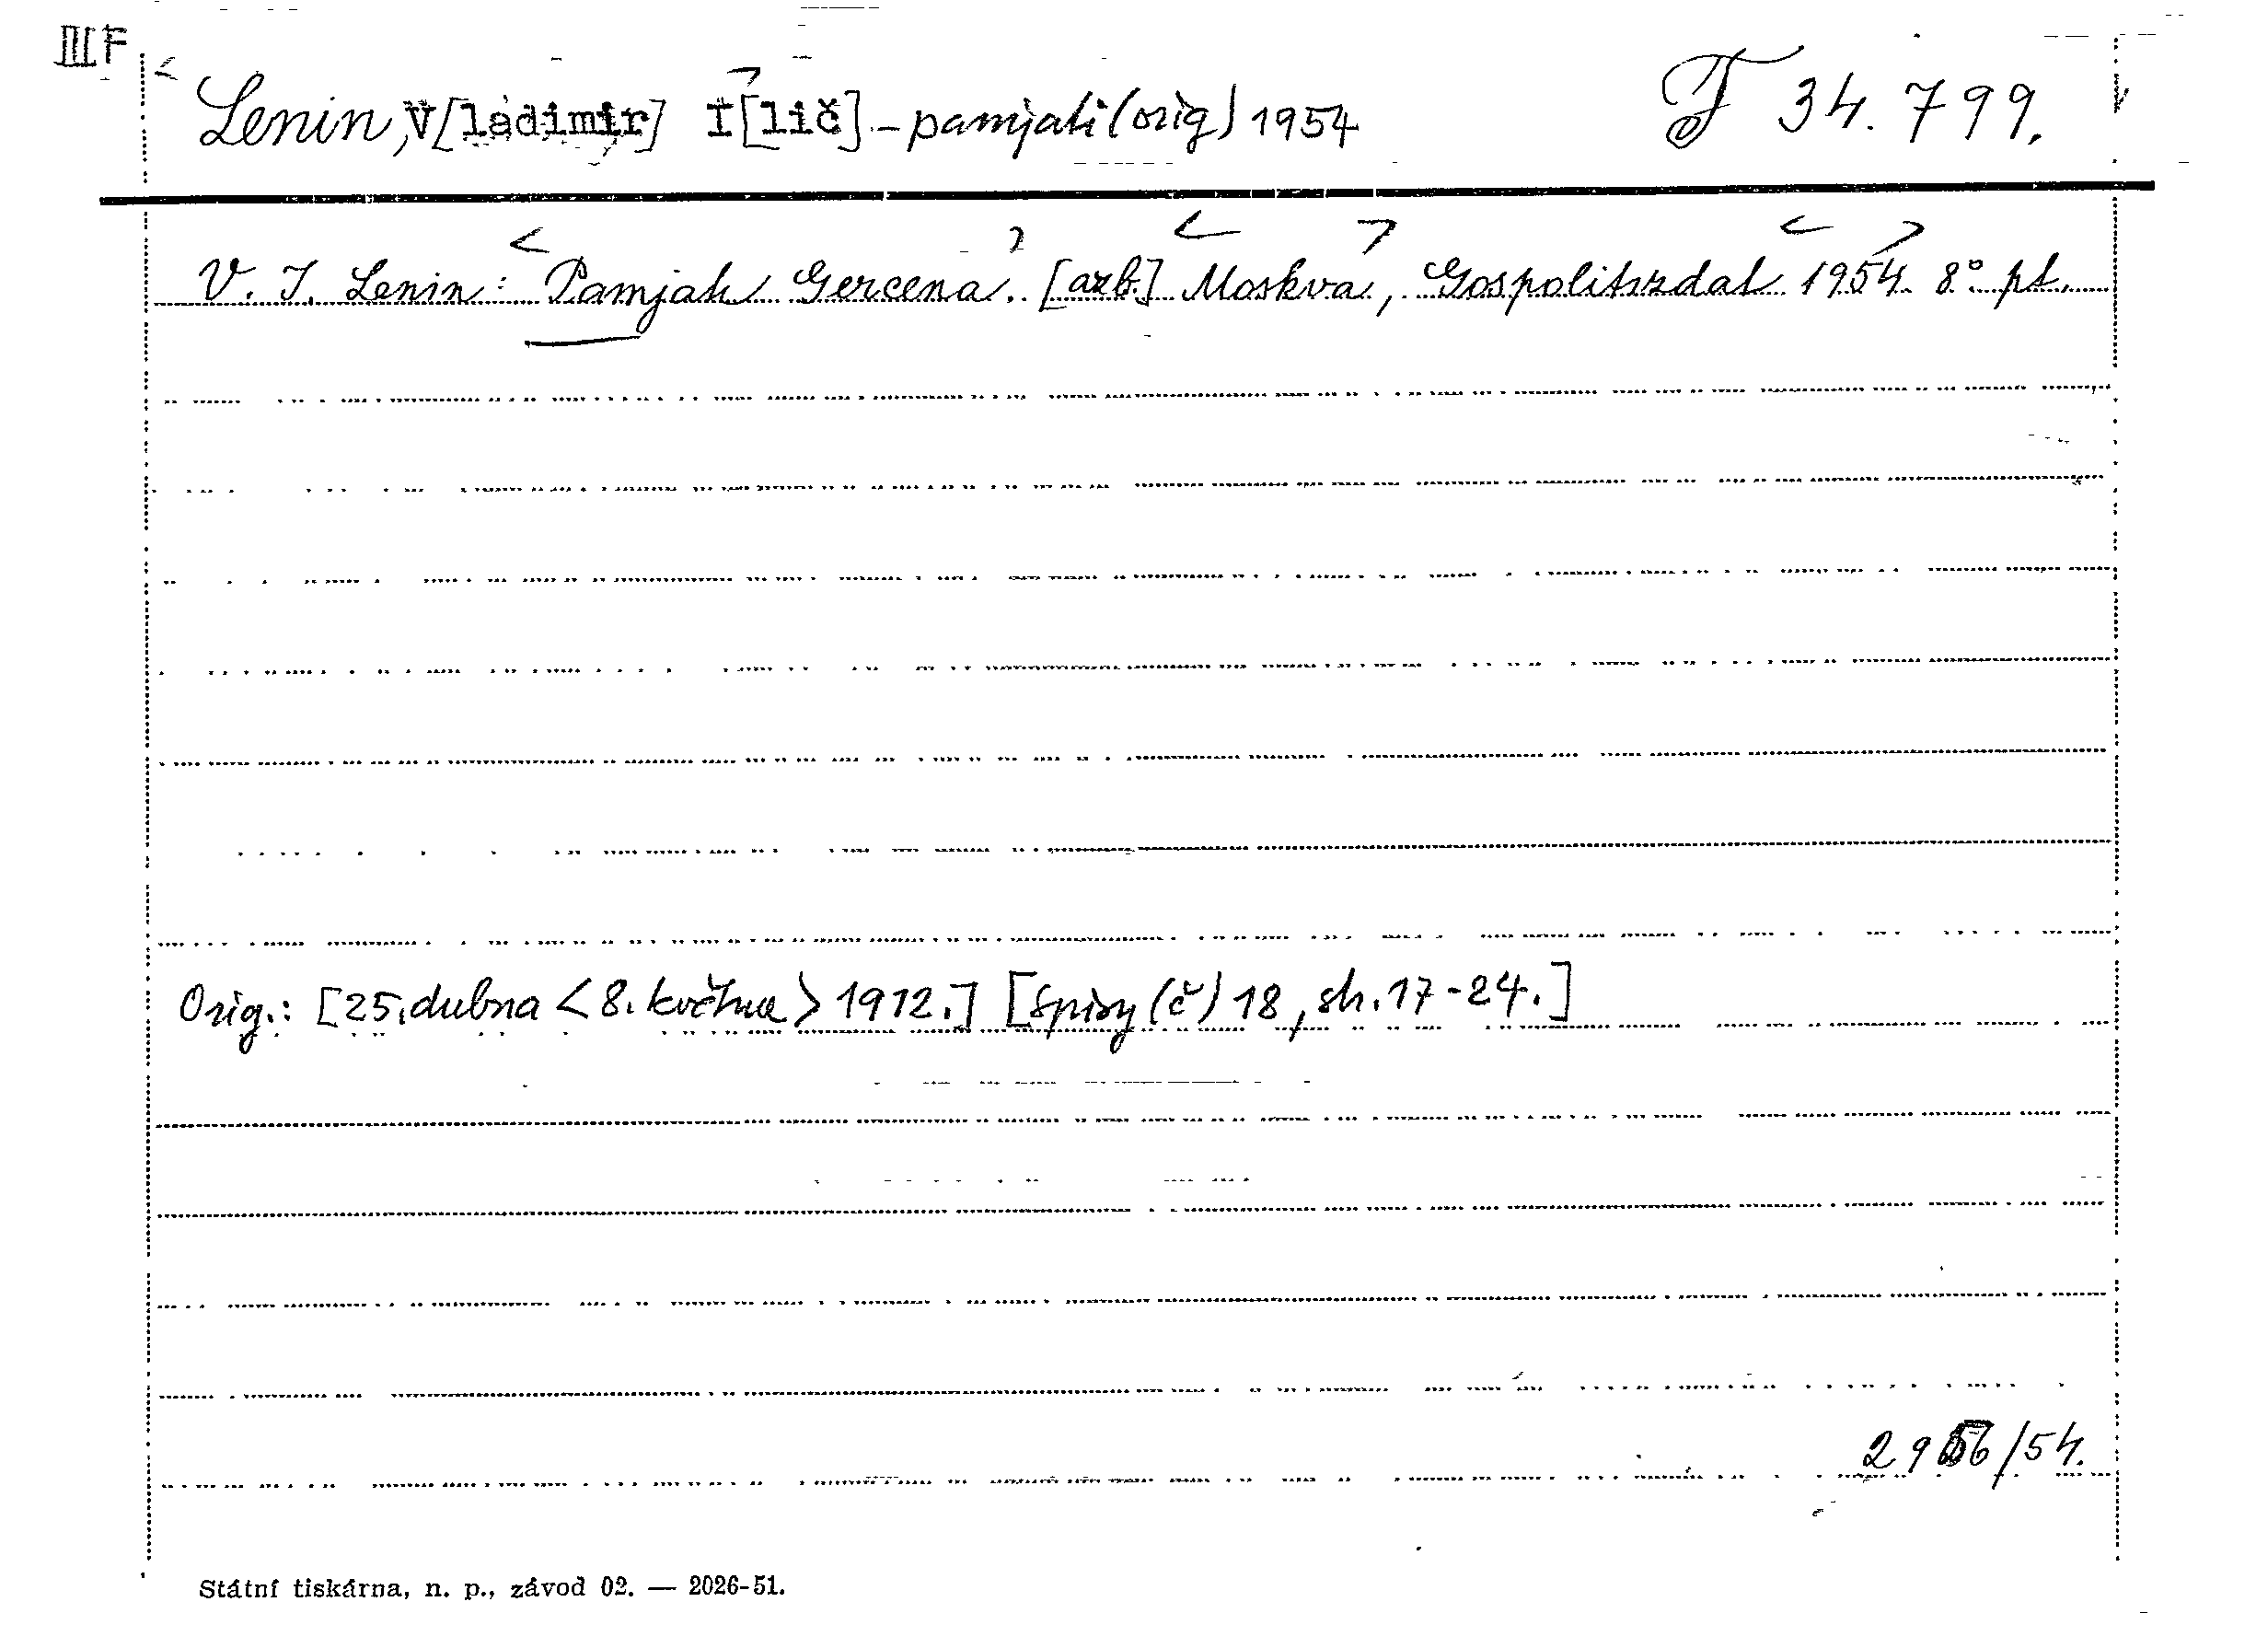 III F
Lenin, V[ladimir] I[lič] - pamjati (orig) 1954 F 34.799.
V. I. Lenin: Pamjati Gercena. [azb.] Moskva, Gospolitizdat 1954. 8° pt.
Orig.: [25. dubna <8. května> 1912.] [Spisy (č) 18, str. 17-24.]
/54.
Státní tiskárna, n. p., závod 02. — 2026-51.